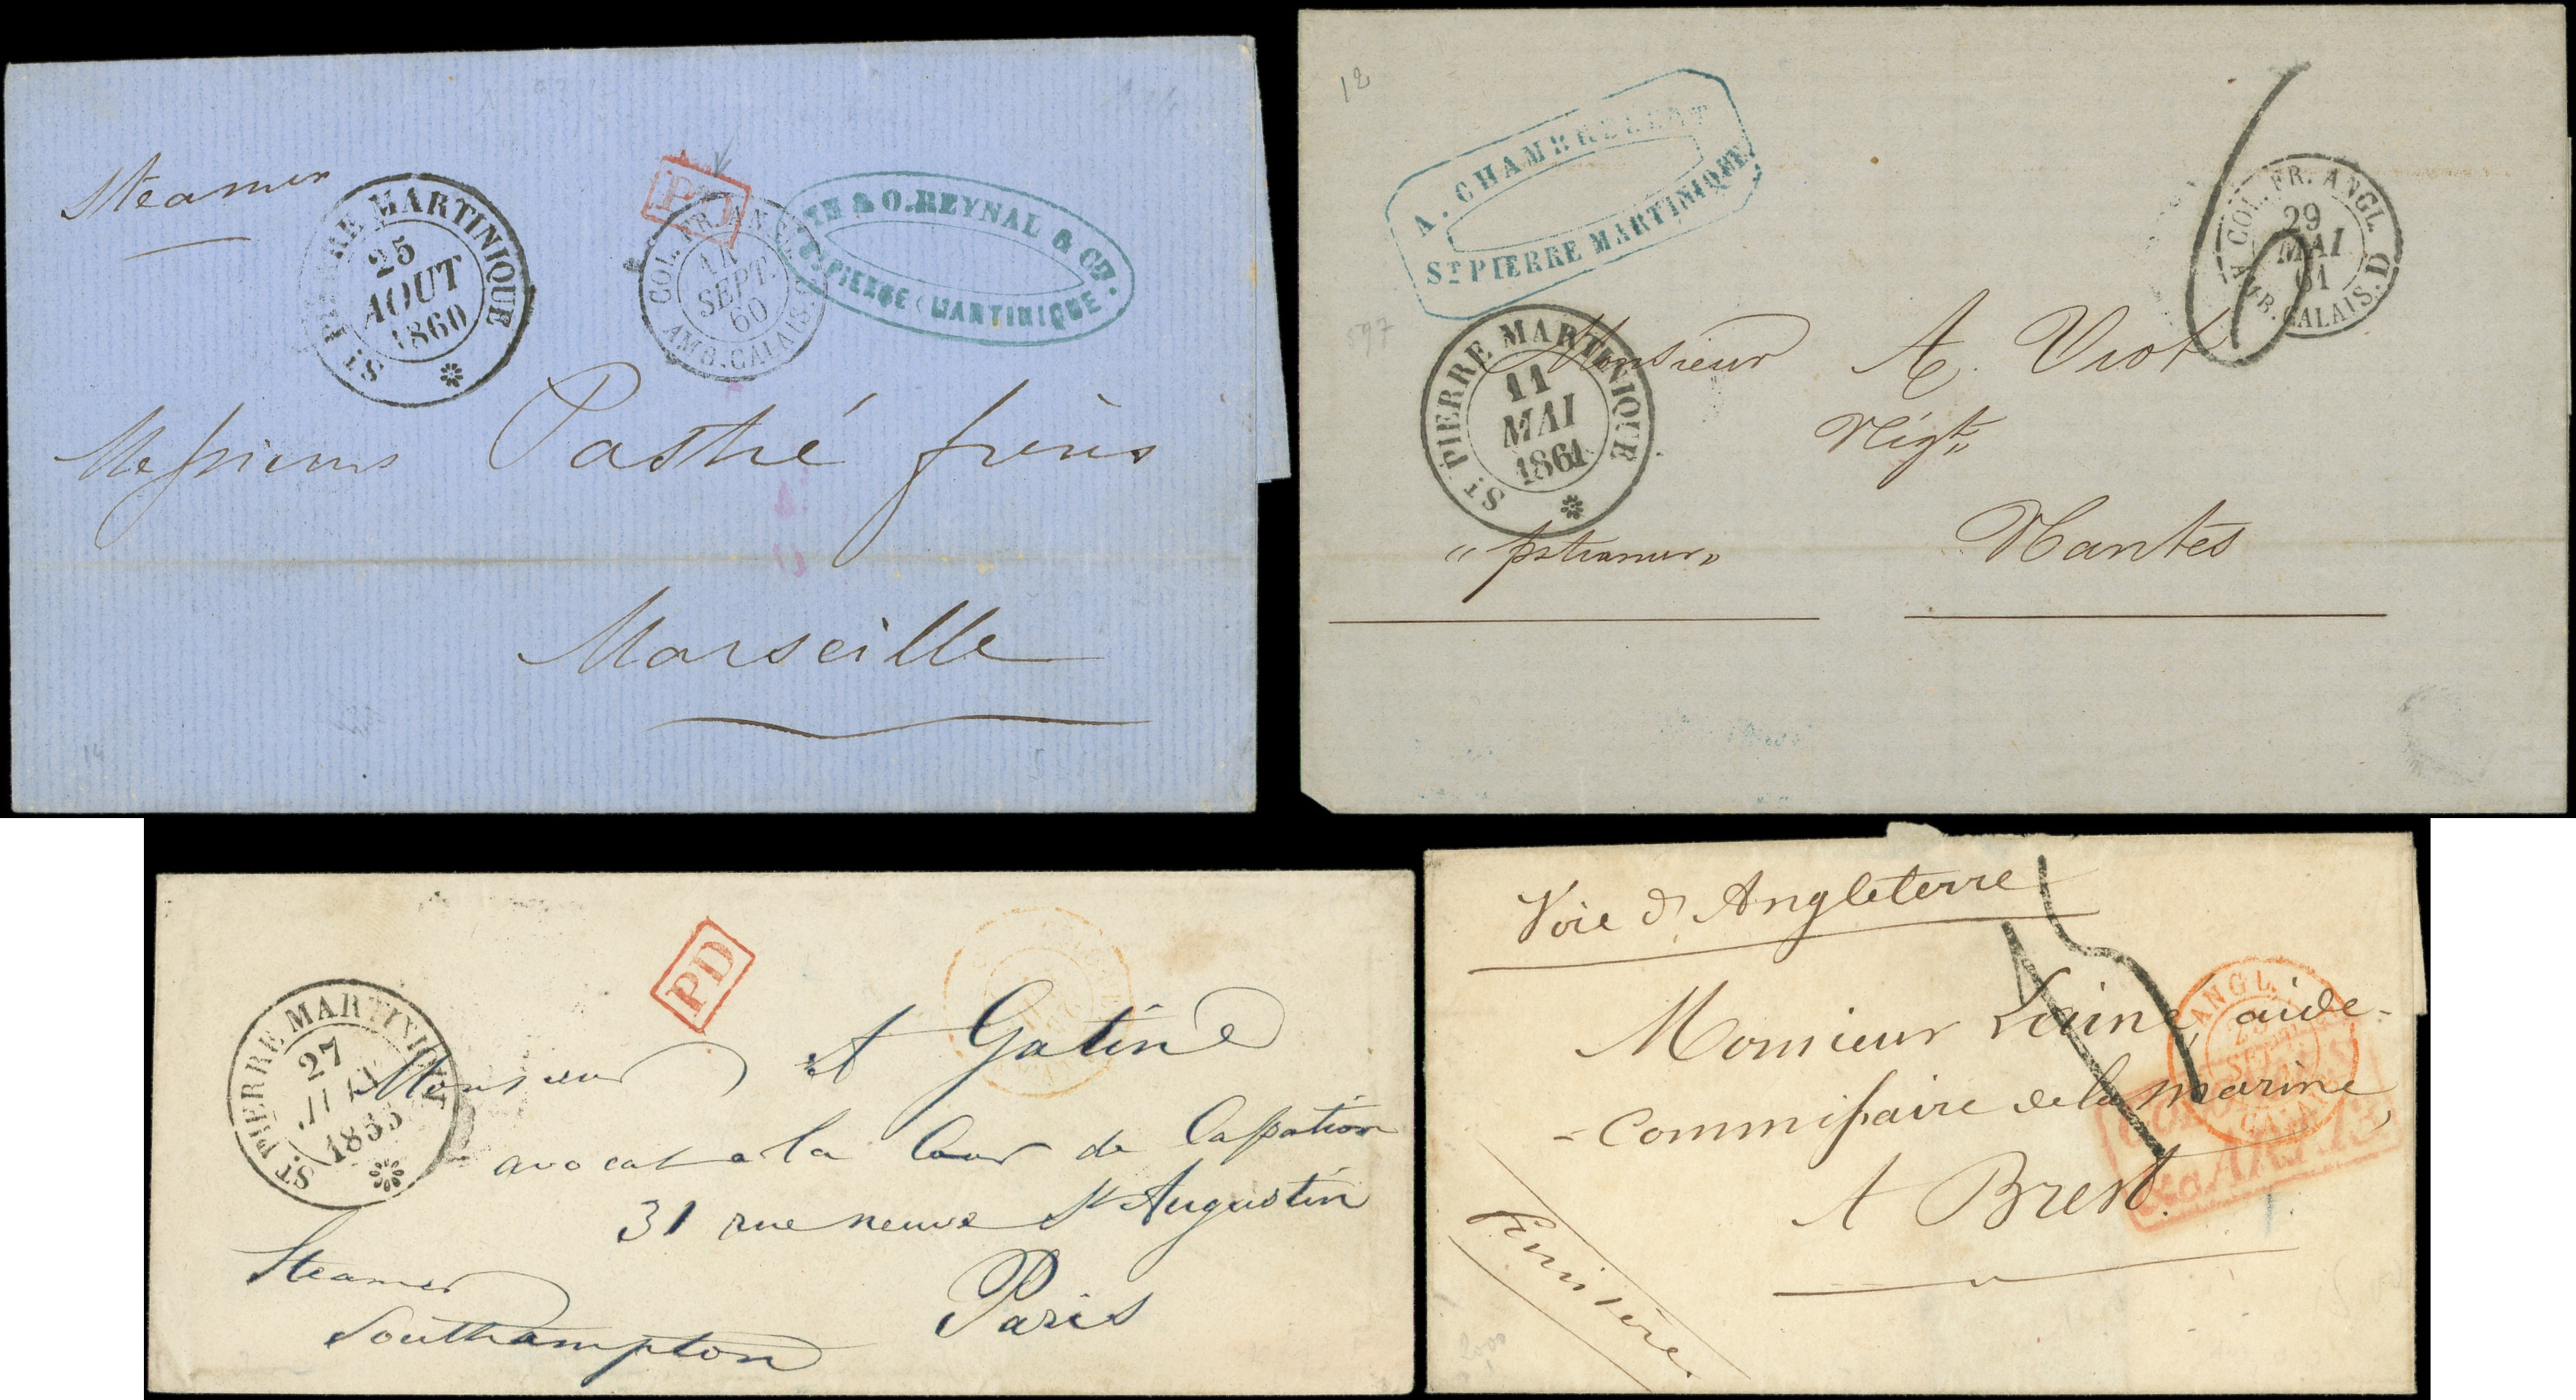 Steamer
ST PIERRE MARTINIQUE
25
AOUT
1860
PD
COL. FR. ANGL.
SEPT.
60
AMB. CALAIS
& O. REYNAL & CIE.
ST PIERRE (MARTINIQUE
Messieurs Pastré frères
Marseille
14
12
A. CHAMBRELENT
ST PIERRE MARTINIQUE
6
COL. FR. ANGL.
29
MAI
61
AMB. CALAIS. D
597
ST PIERRE MARTINIQUE
11
MAI
1861
Monsieur A. Viot
Négt
"pr steamer"
Nantes
PD
ST PIERRE MARTINIQUE
27
1855
Monsieur A Gatine
avocat a la Cour de Cassation
31 rue neuve St Augustin
Steamer
Southampton
Paris
Voie d'Angleterre
15
ANGL.
Monsieur Lainé, aide-
-commissaire de la marine,
A Brest.
Finistère.